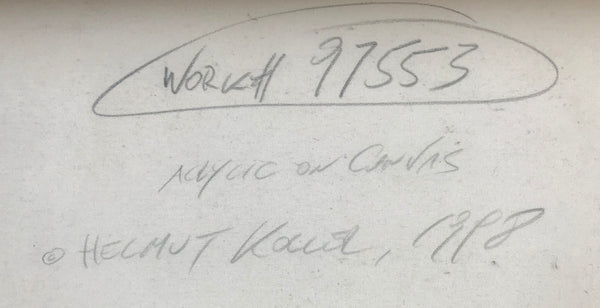 WORK# 97553
ACRYLIC ON CANVAS
© HELMUT KOLLER, 1998